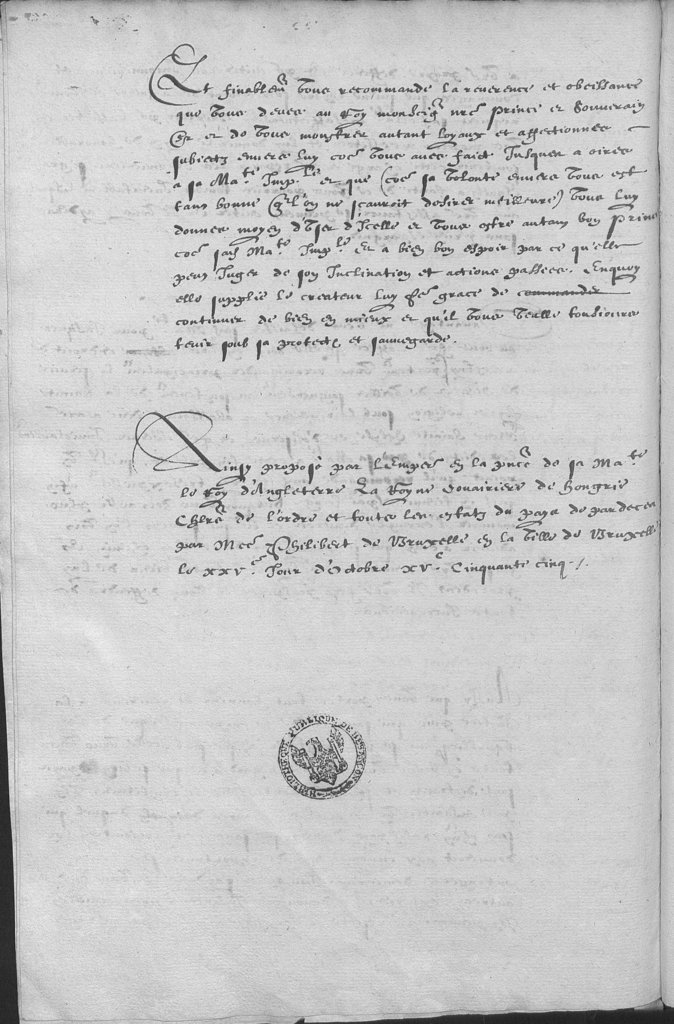 Et finablem̃t vous recommande la reverence et obeissance
que vous devez au Roy monseigr̃ nre Prince et Souverain
Sr̃ et de vous monstrer autant loyaux et affectionnez
subiectz envers luy coe vous avez faict Jusques a oires
a sa Ma.te Imp.le et que (coe sa volonte envers vous est
tant bonne qu'on ne scauroit desirer meilleure) vous luy
donnez moyen d'user d'Icelle et vous estre autant bon Prince
coe sad Ma.te Imp.le Et a bien bon espoir par ce qu'elle
peut Juger de son Inclination et actions passees. Enquoy
elle supplie le createur luy fe grace de commander
continuer de bien en mieux et qu'il vous veulle tousiours
tenir soub sa protecõ et sauvegarde.
Ainsy proposé par l'emper en la pnce de sa Ma.te
le Roy d'Angleterre La Royne douairiere de Hongrie
Chlrs de l'ordre et toute les estatz du pays de pardeca
par Mre Philibert de Bruxelle en la ville de Bruxelle
le xxv.e Jour d'octobre xv.c Cinquante cinq ./.
BIBLIOTHEQUE PUBLIQUE DE BESANÇON